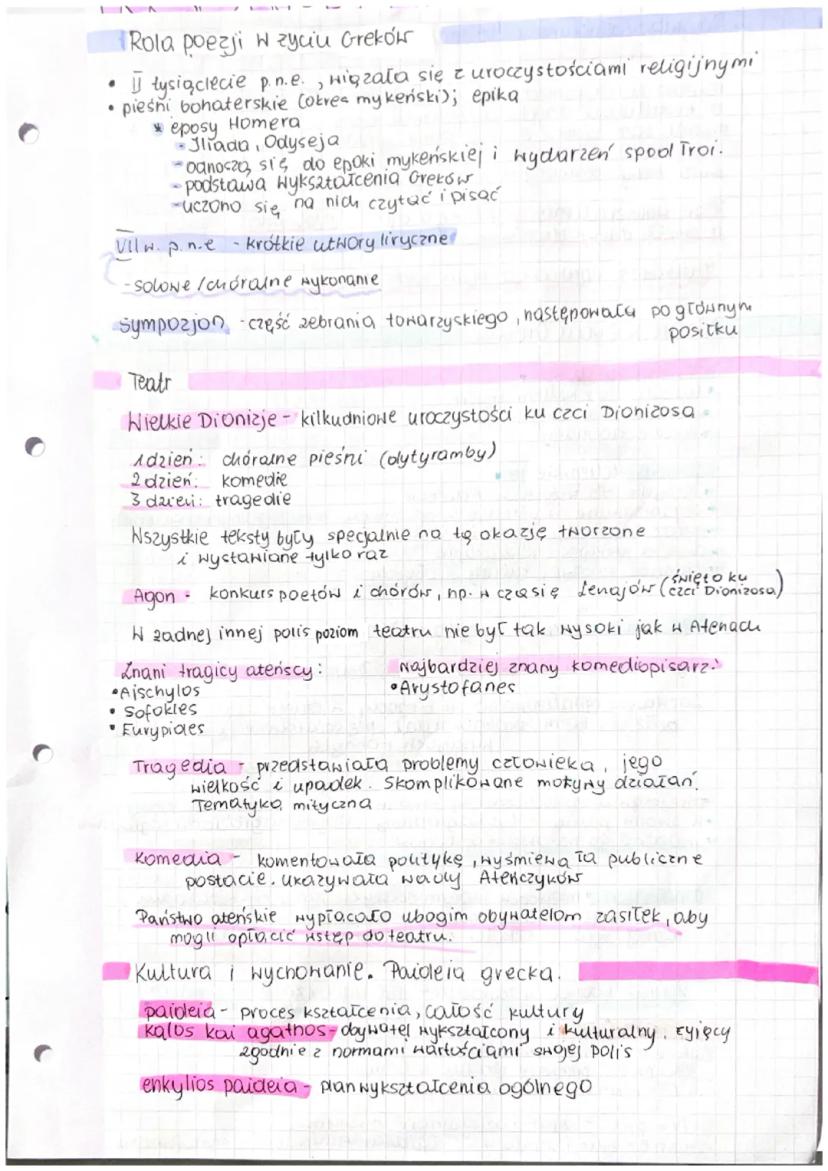 Rola poezji w życiu Greków
• II tysiąclecie p.n.e. , wiązała się z uroczystościami religijnymi
• pieśni bohaterskie (okres mykeński); epika
* eposy Homera
- Iliada, Odyseja
- odnoszą się do epoki mykeńskiej i wydarzeń spod Troi.
- podstawa wykształcenia Greków
- uczono się na nich czytać i pisać
VII w. p.n.e - krótkie utwory liryczne
- solowe / chóralne wykonanie
sympozjon - część zebrania towarzyskiego, następowała po głównym
posiłku
Teatr
Wielkie Dionizje - kilkudniowe uroczystości ku czci Dionizosa
1 dzień: chóralne pieśni (dytyramby)
2 dzień: komedie
3 dzień: tragedie
Wszystkie teksty były specjalnie na tę okazję tworzone
i wystawiane tylko raz
Agon - konkurs poetów i chórów, np. w czasie Lenajów (święto ku czci Dionizosa)
W żadnej innej polis poziom teatru nie był tak wysoki jak w Atenach
Znani tragicy ateńscy: Najbardziej znany komediopisarz:
• Ajschylos • Arystofanes
• Sofokles
• Eurypides
Tragedia - przedstawiała problemy człowieka, jego
wielkość i upadek. Skomplikowane motywy działań.
Tematyka mityczna
Komedia - komentowała politykę, wyśmiewała publiczne
postacie. Ukazywała wady Ateńczyków
Państwo ateńskie wypłacało ubogim obywatelom zasiłek, aby
mogli opłacić wstęp do teatru.
Kultura i wychowanie. Paideia grecka.
paideia - proces kształcenia, całość kultury
kalos kai agathos - obywatel wykształcony i kulturalny, żyjący
zgodnie z normami wartościami swojej polis
enkylios paideia - plan wykształcenia ogólnego